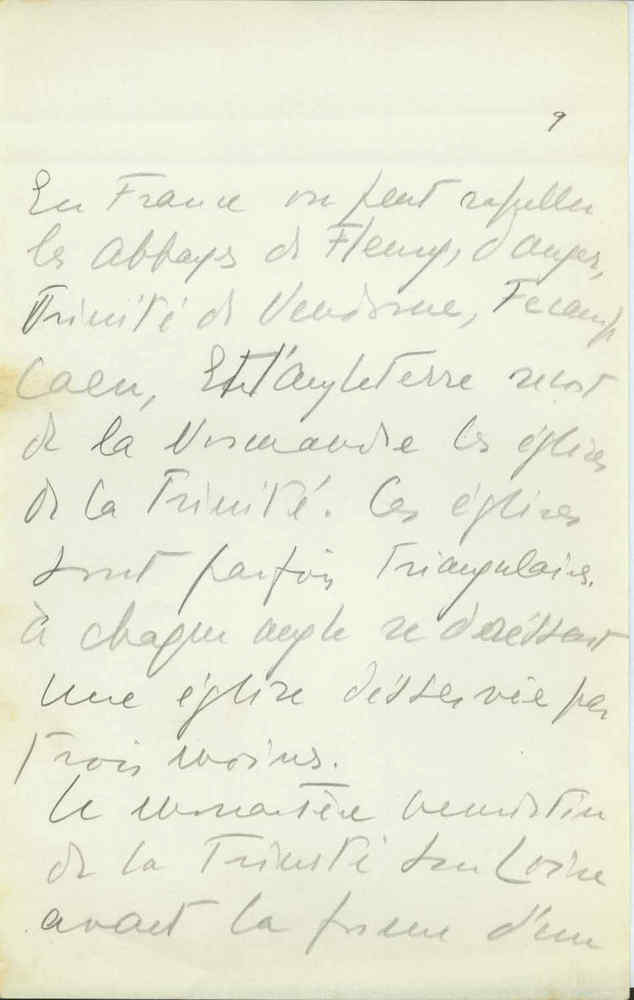 9
En France on peut rappeller
les abbayes de Fleury, d'Anger,
Trinité de Vendome, Fecamp
Caen, Et l'Angleterre recoit
de la Normandie les églises
de la Trinité. Ces églises
sont parfois triangulaires.
à chaque angle se
une église desservie par
trois moines.
Le monastère
de la Trinité sur Loire
avait la forme d'un